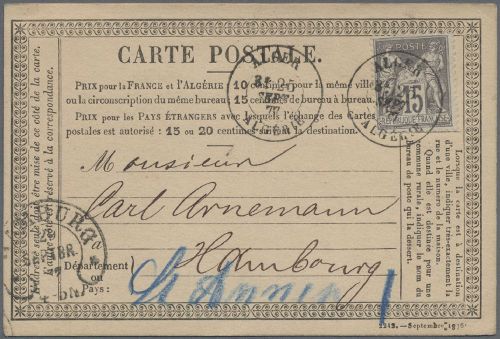 CARTE POSTALE.
PRIX pour la FRANCE et l'ALGÉRIE 10 centimes pour la même ville
ou la circonscription du même bureau; 15 centimes de bureau à bureau.
PRIX pour les PAYS ÉTRANGERS avec lesquels l'échange des Cartes
postales est autorisé: 15 ou 20 centimes selon la destination.
ALGER
ALGÉRIE
POSTE
15
REPUBLIQUE FRANC
ALGER
ALGÉRIE
Monsieur
Carl Arnemann
Hambourg
Département
Pays:
St Annen
1
Adresse seule doit être mise de ce côté de la carte.
L'autre côté est réservé à la correspondance.
Lorsque la carte est à destination
d'une ville, indiquer très exactement la
rue et le numéro de la maison.
Quand elle est destinée pour une
commune rurale, indiquer le nom du
bureau de poste qui la dessert.
2213. — Septembre 1876